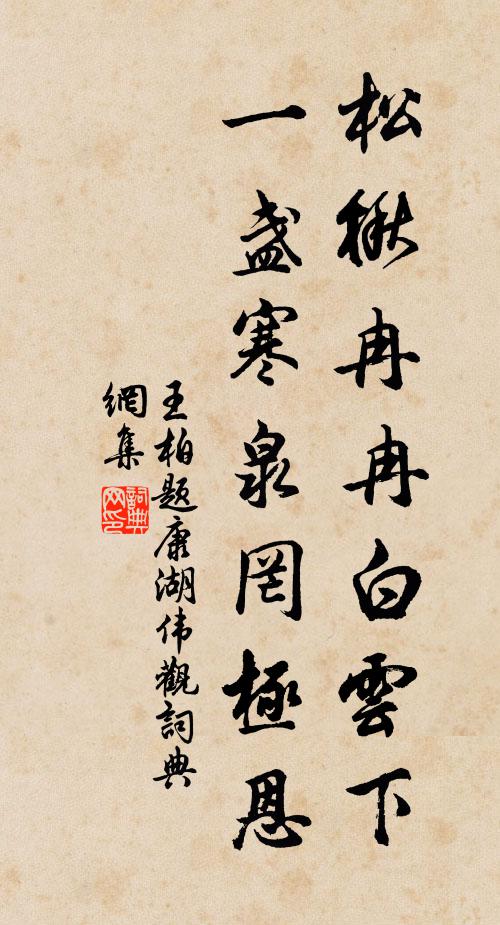 松楸冉冉白雲下
一盞寒泉罔極恩
王柏题康湖伟觀詞典
網集
詞典网印